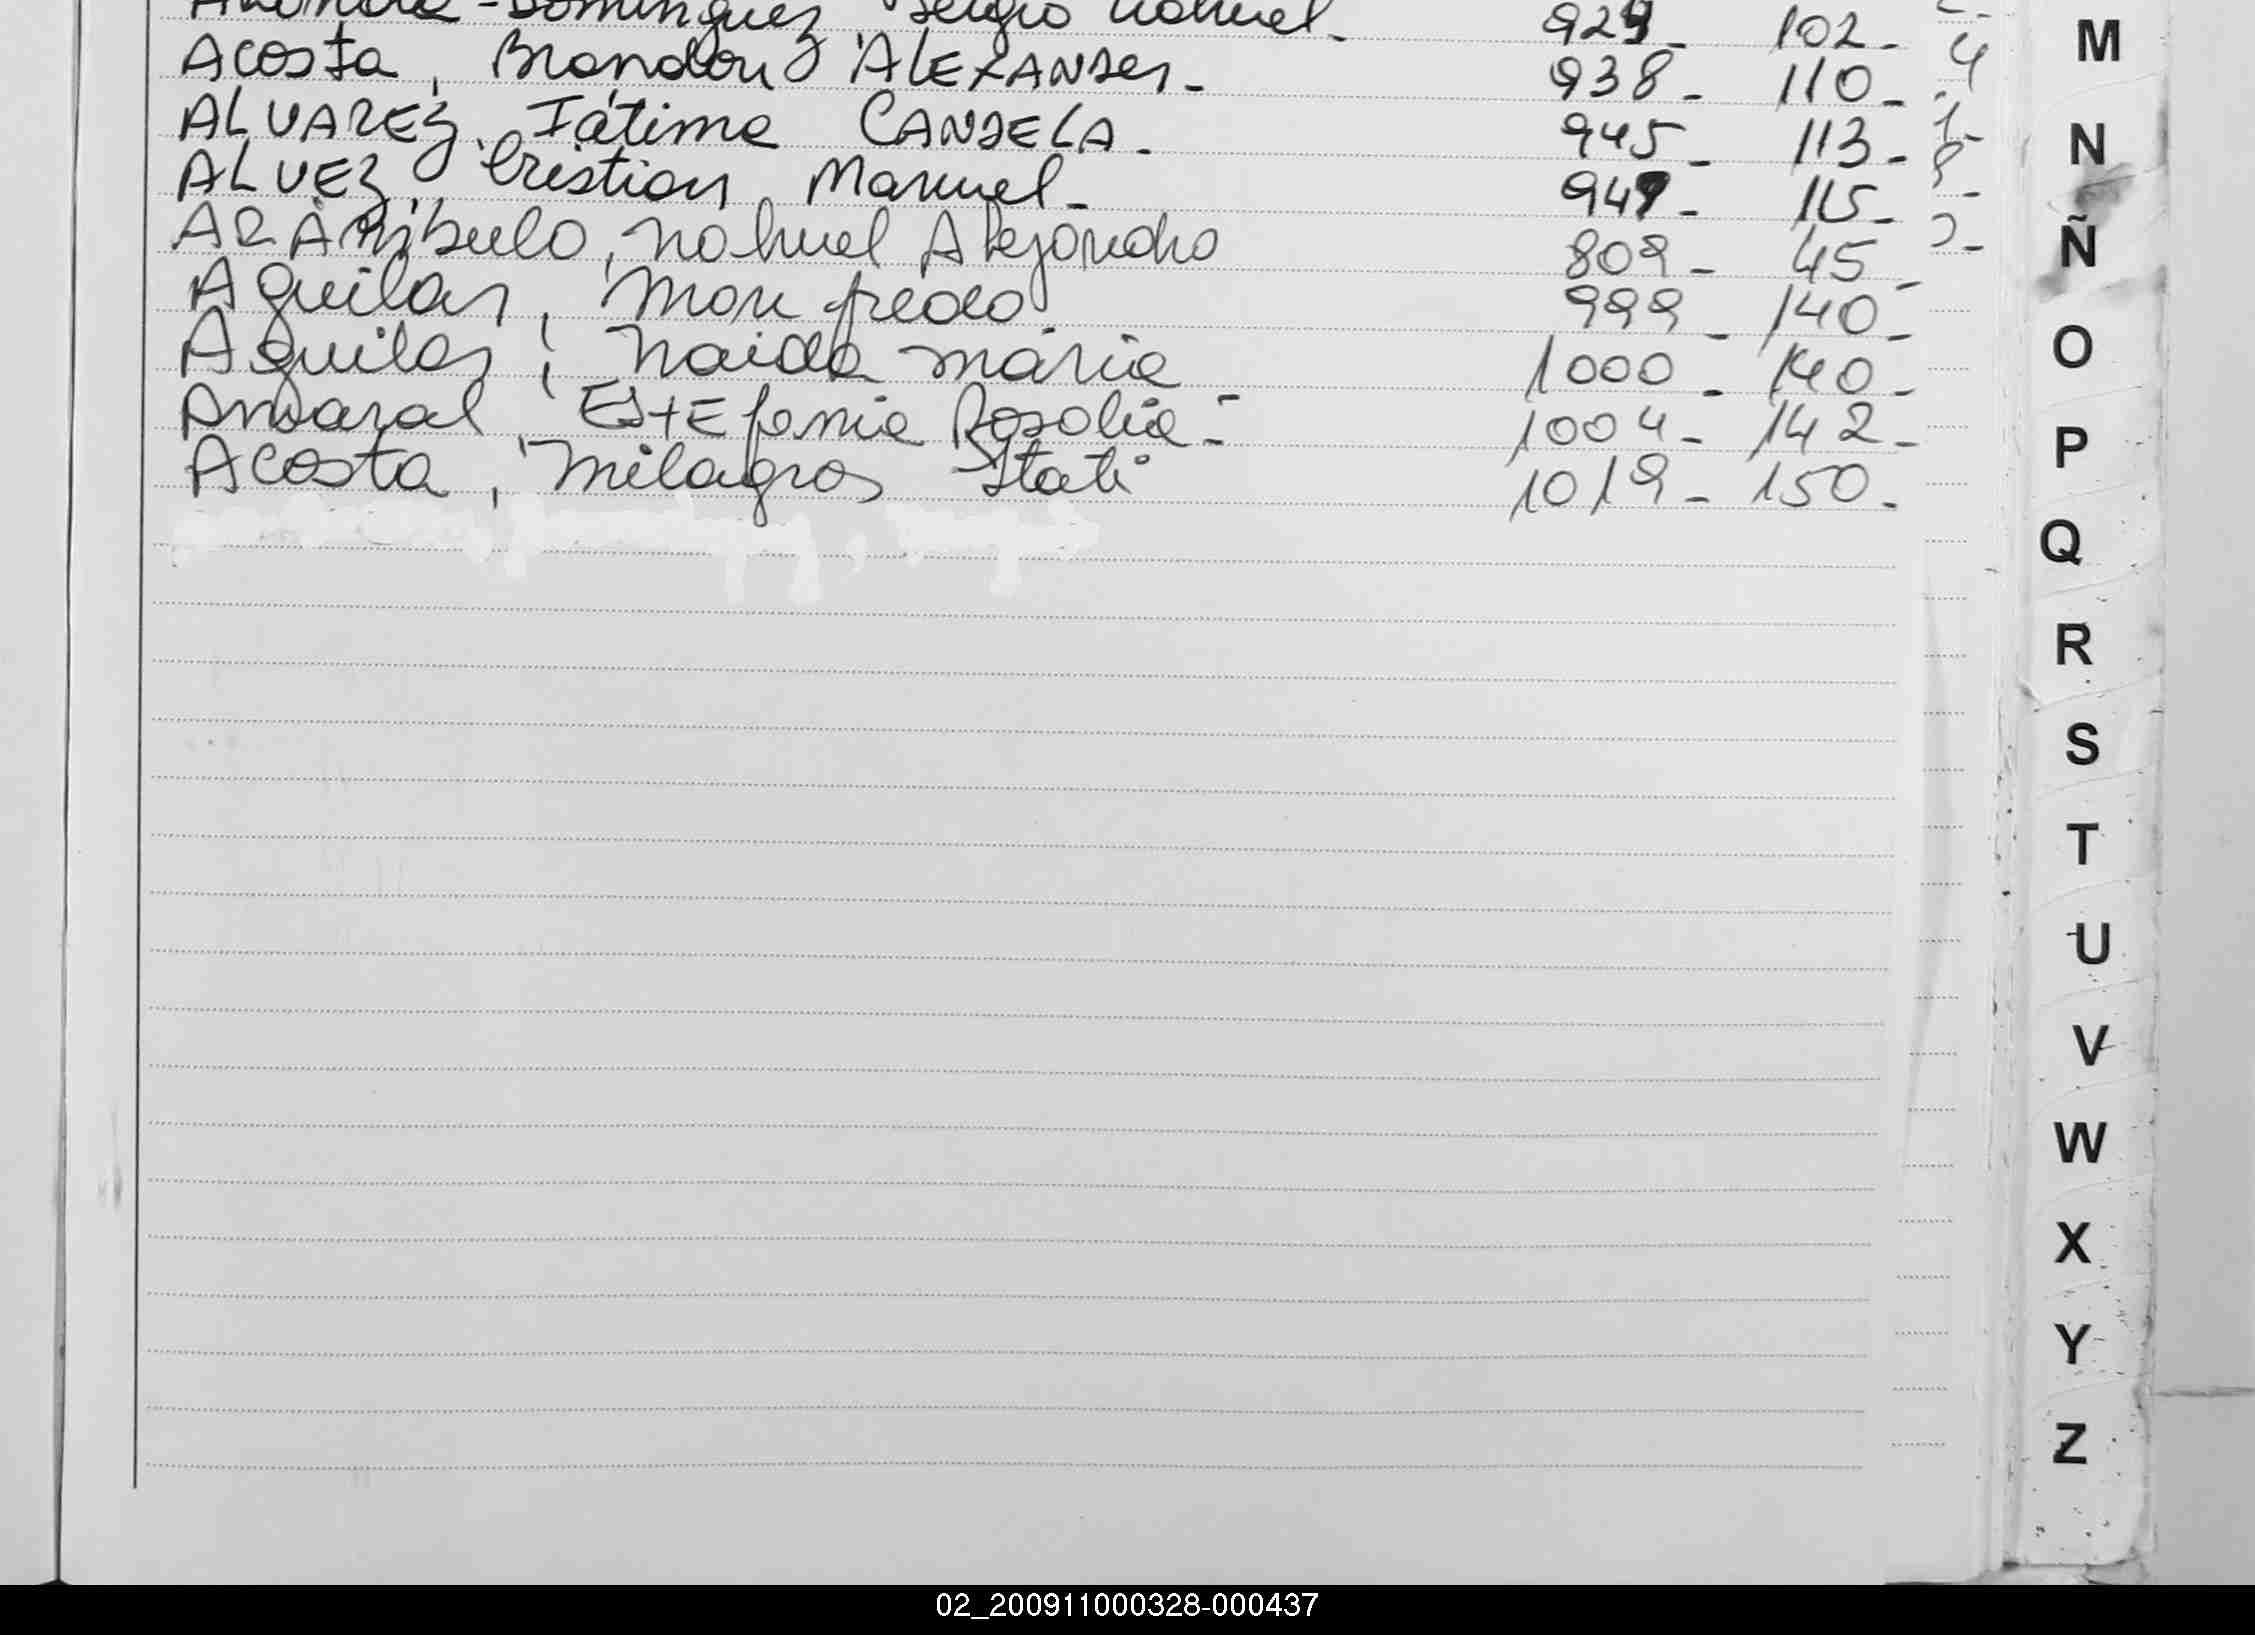 Dominguez Sergio Nahuel - 929 - 102 -
Acosta, Brandon ALEXANDER - 938 - 110 -
ALVAREZ, Fátima CANDELA - 945 - 113 -
ALVEZ, Cristian Manuel - 947 - 115 -
Nahuel Alejandro 809 - 45 -
Aguilar, Manfredo 999 - 140 -
Aguilar, Naida María - 1000 - 140 -
Amaral, EstEfania Rosalia - 1004 - 142 -
Acosta, Milagros Itati 1019 - 150 -
M
N
Ñ
O
P
Q
R
S
T
U
V
W
X
Y
Z
02_200911000328-000437